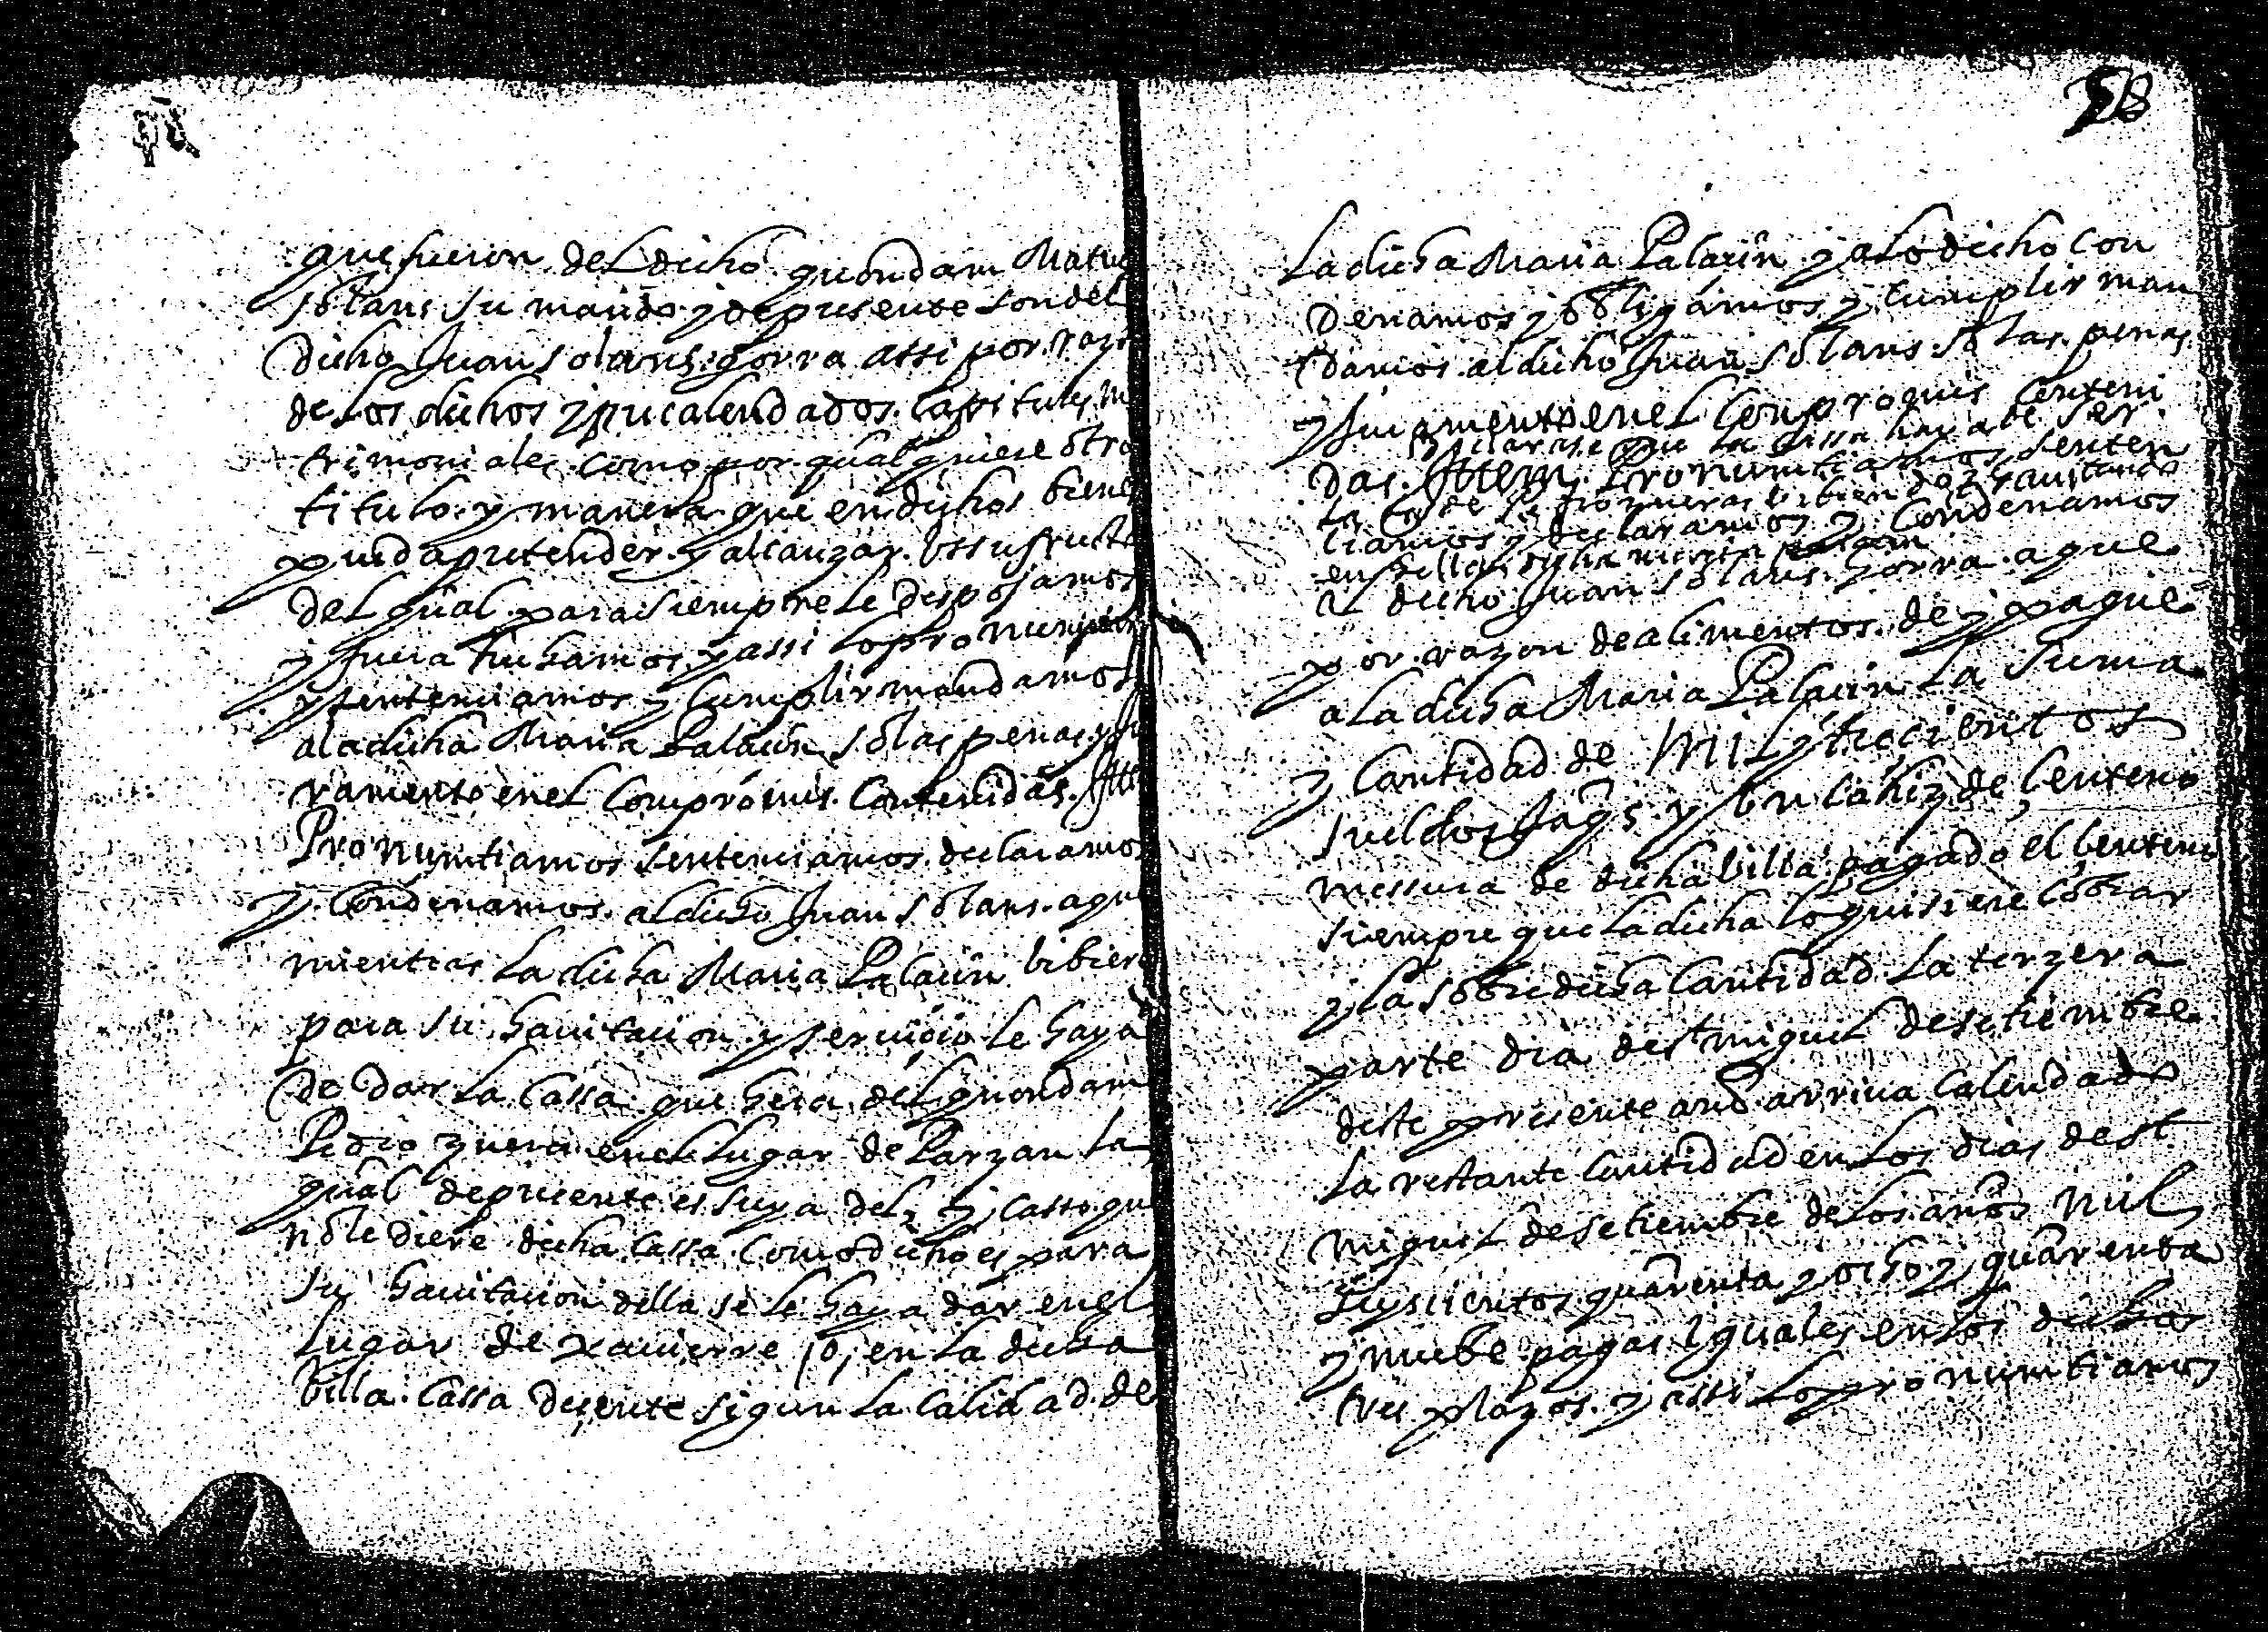 que fueron del dicho quondam Matheo
solans su marido y de presente son del
dicho Juan solans gorra assi por raço
de los dichos y precalendados capitules m
trimoniales como por qualquiere otro
titulo y manera que en dichos bienes
pueda pretender y alcanzar ussufructo
del qual para siempre le desposamos
y fuera hechamos y assi lo pronunçia
y sentençiamos y cumplir mandamos
a la dicha Maria Palaçin so las penas y ju
ramento en el compromis contenidas. Itte
Pronuntiamos sentençiamos declaramos
y condenamos al dicho Juan solans a que
mientras la dicha Maria Palaçin bibiere
para su hauitaçion y seruiçio le haya
de dar la cassa que hera del quondam
Pedro zuera en el lugar de Parzan la
qual de presente es suya del y casso que
no le diere dicha cassa como dicho es para
su hauitaçion della se le haya dar en el
lugar de xauierre /o/ en la dicha
billa cassa deçente segun la calidad de
58
la dicha Maria Palaçin y a lo dicho con
denamos y obligamos y cumplir man
damos al dicho Juan solans so las penas
y juramento en el conpromis conteni
declarasse que la cassa haya de ser
das. Ittem Pronuntiamos senten
la de zueras bibiendo y hauitando
tiamos y declaramos y condenamos
en ella dicha maria
al dicho Juan solans gorra a que
por razon de alimentos de y pague
a la dicha Maria Palaçin la suma
y cantidad de mil y treçientos
sueldos Jaqs. y un cahiz de çenteno
messura de dicha billa pagado el çenteno
siempre que la dicha lo quisiere cobrar
y la sobredicha cantidad la terzera
parte dia de st miguel de setiembre
deste presente año arriua calendado
la restante cantidad en los dias de st
miguel de setiembre de los años mil
seysçientos quarenta y ocho y quarenta
y nuebe pagas iguales en los dichos
tres plazos y assi lo pronuntiamos